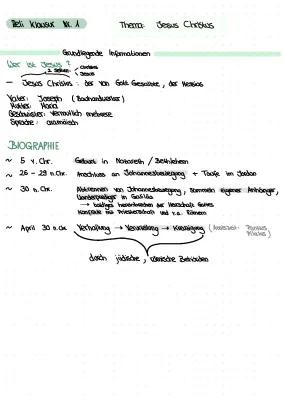 Reli Klausur Nr. 1 Thema: Jesus Christus
Grundlegende Informationen
Wer ist Jesus ?
2 Seiten: Christus
Jesus
- Jesus Christus : der von Gott Gesalbte, der Messias
Vater: Joseph (Bauhandwerker)
Mutter: Maria
Geschwister: vermutlich mehrere
Sprache: aramäisch
BIOGRAPHIE
~ 5 v. Chr. Geburt in Nazareth / Bethlehem
~ 26 - 29 n. Chr. Anschluss an Johannesbewegung + Taufe im Jordan
~ 30 n. Chr. Abtrennen von Johannesbewegung, sammeln eigener Anhänger,
Wanderprediger in Galiläa
→ baldiges hereinbrechen der Herrschaft Gottes
Konflikte mit Priesterschaft und r.a. Römern
~ April 30 n. Chr. Verhaftung → Verurteilung → Kreuzigung ( Pontius
Pilatus)
durch jüdische, römische Behörden